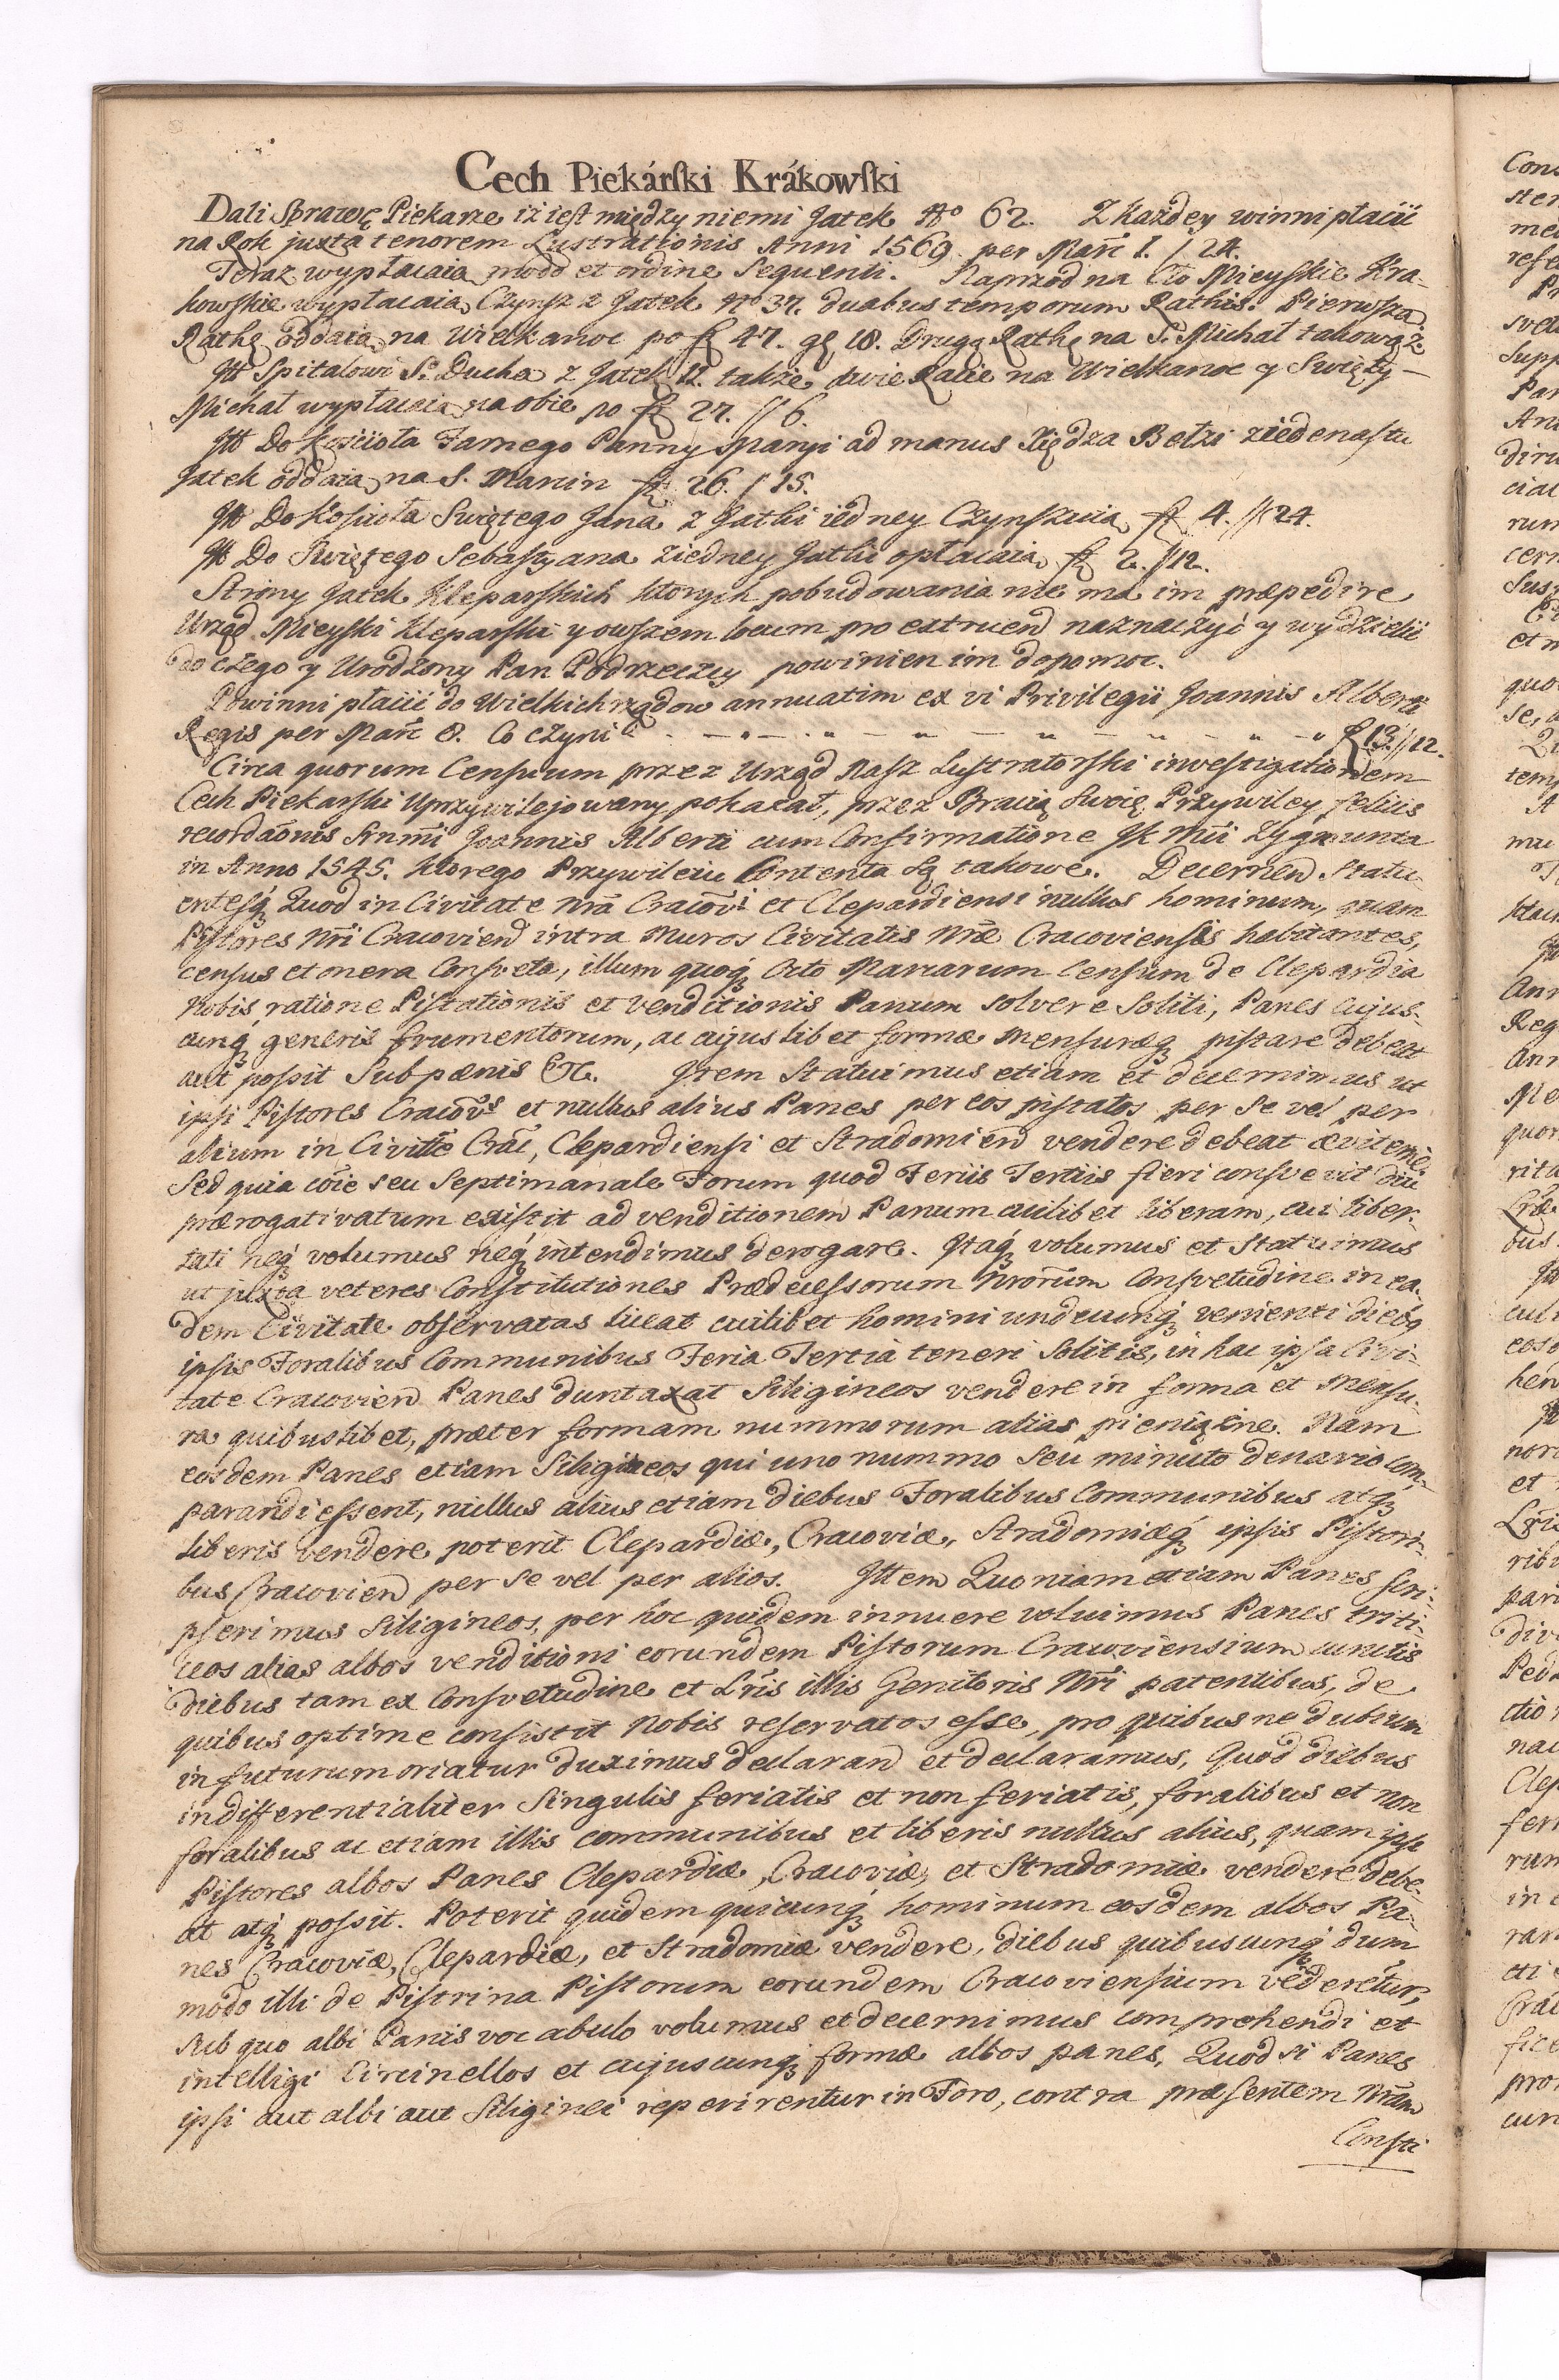 Cech Piekárski Krákowski
Dali Sprawę Piekarze iż iest między niemi Jatek No 62. Z każdey winni płacić
na Rok juxta tenorem Lustrationis Anni 1569 per Marc̃ 1. / 24.
Teraz wypłacaią modo et ordine sequenti. Naprzod na Cło Mieyskie Kra-
kowskie wypłacaią Czynsz z Jatek No 37. duabus temporum Rathis. Pierwszą
Rathę oddaią na Wielkanoc po fl 47. gł 18. Drugą Rathę na S. Michał takowąż
Itt Spitalowi S. Ducha z Jatek 12. także dwie Racie na Wielkanoc y Swięty
Michał wypłacaią na obie po fl 27. // 6.
Itt Do Kościoła Farnego Panny Maryi ad manus Xiędza Bełzi z iedenastu
Jatek oddaią na S. Marcin fl 26. / 15.
Itt Do Kościoła Swiętego Jana z Jatki iedney Czynszuią fl 4. // 24.
Itt Do Swiętego Sebastyana z iedney Jatki opłacaią fl 2. // 12.
Strony Jatek Kleparskich ktorych pobudowania nie ma im præpedire
Urząd Mieyski Kleparski y owszem locum pro extruend naznaczyć y wydzielić
do czego y Urodzony Pan Podrzeczy powinien im dopomoc.
Powinni płacić do Wielkichrządow annuatim ex vi Privilegii Joannis Alberti
Regis per Marc̃ 8. Co czyni - - - - - fl 13. // 12.
Circa quorum Censuum przez Urząd Nasz Lustratorski investigationem
Cech Piekarski Uprzywilejowany pokazał, przez Bracią Swoię Przywiley felicis
recordaōnis Srnm̃i Joannis Alberti cum Confirmatione JK Mci Zygmunta
in Anno 1545. ktorego Przywileiu Contenta są takowe. Decernen̄ Statu-
entesq́ Quod in Civitate Nr̃a Cracovi et Clepardiensi nullus hominum, quam
Pistores Nr̃i Cracovien̄ intra Muros Civitatis Nr̃æ Cracoviensis habitantes,
census et onera Consveta, illum quoq́ Octo Marcarum Censum de Clepardia
Nobis ratione Pistationis et venditionis Panum solvere Soliti, Panes cujus-
cunq́ generis frumentorum, ac cujuslibet formæ Mensuræq́ pistare debeat
aut possit Sub pœnis &c. Item Statuimus etiam et decernimus ut
ipsi Pistores Cracovs et nullus alius Panes per eos pistatos per Se vel per
alium in Civitte Crac̃, Clepardiensi et Stradomien̄ vendere debeat
Sed quia cōie seu Septimanale Forum quod Feriis Tertiis fieri consvevit
prærogativatum existit ad venditionem Panum cuilibet liberam, cui liber-
tati neq́ volumus neq́ intendimus derogare. Itaq́ volumus et Statuimus
ut juxta veteres Constitutiones Prædecessorum Nrorum Consvetudine in ea-
dem Civitate observatas liceat cuilibet homini undecunq́ venienti diebq
ipsis Foralibus Communibus Feria Tertia teneri Solitis, in hac ipsa Civi-
tate Cracovien̄ Panes duntaxat Siligineos vendere in forma et Mensu-
ra quibuslibet, præter formam nummorum alias pieniężne. Nam
eosdem Panes etiam Siligineos qui uno nummo seu minuto denario com-
parandi essent, nullus alius etiam diebus Foralibus Communibus atq́
liberis vendere poterit Clepardiæ, Cracoviæ, Stradomiæq́ ipsis Pistori-
bus Cracovien̄ per Se vel per alios. Ittem Quoniam etiam Panes Scri-
pserimus Siligineos, per hoc quidem innuere voluimus Panes triti-
ceos alias albos venditioni eorundem Pistorum Cracoviensium cunctis
diebus tam ex Consvetudine et Lr̃is illis Genitoris Nr̃i patentibus, de
quibus optime consistit Nobis reservatos esse, pro quibus ne dubium
in futurum oriatur duximus declaran̄ et declaramus, Quod diebus
indifferentialiter Singulis feriatis et non feriatis, foralibus et non
foralibus ac etiam illis communibus et liberis nullus alius, quam ipsi
Pistores albos Panes Clepardiæ, Cracoviæ, et Stradomiæ vendere debe-
at atq́ possit. Poterit quidem quicunq́ hominum eosdem albos Pa-
nes Cracoviæ, Clepardiæ, et Stradomiæ vendere, diebus quibuscunq́ dum
modo illi de Pistrina Pistorum eorundem Cracoviensium vederẽtur,
Sub quo albi Panis vocabulo volumus et decernimus comprehendi et
intelligi Circinellos et cujuscunq́ formæ albos panes, Quod si Panes
ipsi aut albi aut Siliginei reperirentur in Foro, contra præsentem Nr̃am
Consti